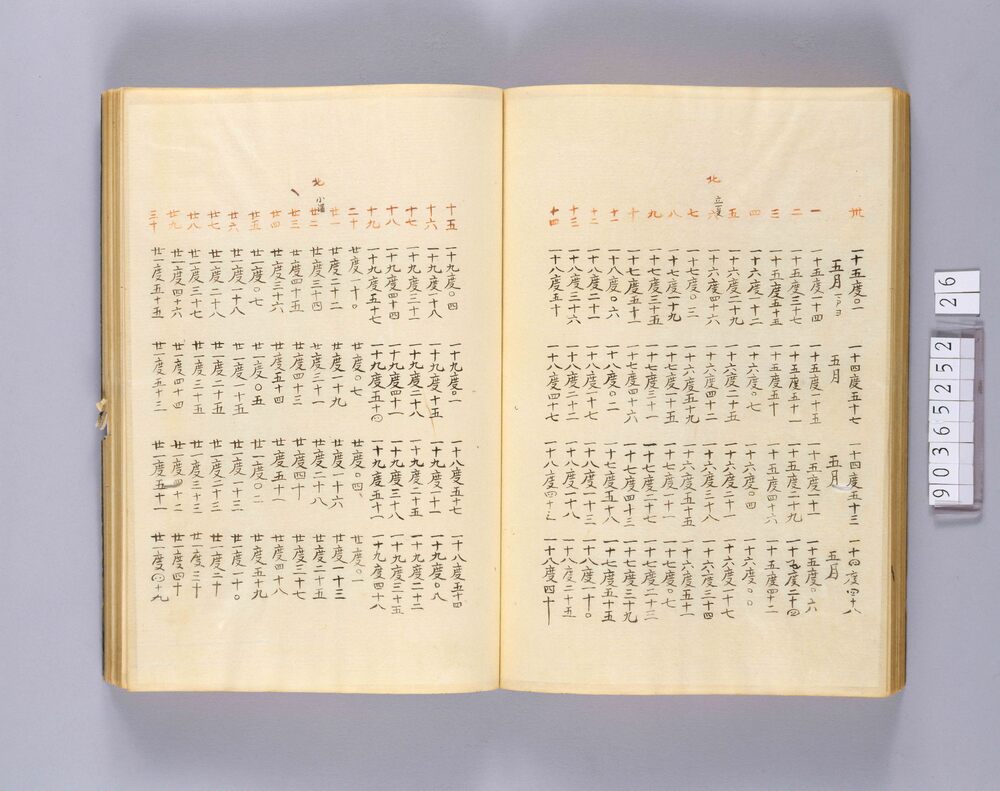 北
卅 一十五度〇一 一十四度五十七 一十四度五十三 一十四度四十八
五月 五月 五月 五月
一 一十五度一十四 一十五度一十五 一十五度一十一 一十五度〇六
二 一十五度三十七 一十五度五十一 一十五度二十九 一十五度二十四
三 一十五度五十五 一十五度五十一 一十五度四十六 一十五度四十二
四 一十六度一十二 一十六度〇七 一十六度〇四 一十六度〇〇
五 一十六度二十九 一十六度二十五 一十六度二十一 一十六度一十七
立夏
六 一十六度四十六 一十六度四十二 一十六度三十八 一十六度三十四
七 一十七度〇三 一十六度五十九 一十六度五十五 一十六度五十一
八 一十七度一十九 一十七度一十五 一十七度一十一 一十七度〇七
九 一十七度三十五 一十七度三十一 一十七度二十七 一十七度二十三
十 一十七度五十一 一十七度四十六 一十七度四十三 一十七度三十九
十一 一十八度〇六 一十八度〇二 一十七度五十八 一十七度五十五
十二 一十八度二十一 一十八度一十七 一十八度一十三 一十八度一十〇
十三 一十八度三十六 一十八度二十二 一十八度一十八 一十八度二十五
十四 一十八度五十 一十八度四十七 一十八度四十三 一十八度四十
北
十五 一十九度〇四 一十九度〇一 一十八度五十七 一十八度五十四
十六 一十九度一十八 一十九度一十五 一十九度一十一 一十九度〇八
十七 一十九度三十一 一十九度二十八 一十九度二十五 一十九度二十二
十八 一十九度四十四 一十九度四十一 一十九度三十八 一十九度三十五
十九 一十九度五十七 一十九度五十四 一十九度五十一 一十九度四十八
二十 廿度一十〇 廿度〇七 廿度〇四 廿度〇一
廿一 廿度二十二 廿度一十九 廿度一十六 廿度一十三
小満
廿二 廿度三十四 廿度三十一 廿度二十八 廿度二十五
廿三 廿度四十五 廿度四十三 廿度四十 廿度三十七
廿四 廿度三十六 廿度五十四 廿度五十一 廿度四十八
廿五 廿一度〇七 廿一度〇五 廿一度〇二 廿度五十九
廿六 廿一度一十八 廿一度一十五 廿一度一十三 廿一度一十〇
廿七 廿一度二十八 廿一度二十五 廿一度二十三 廿一度二十
廿八 廿一度三十七 廿一度三十五 廿一度三十三 廿一度三十
廿九 廿一度四十六 廿一度四十四 廿一度四十二 廿一度四十
三十 廿一度五十五 廿一度五十三 廿一度五十一 廿一度四十九
90365252 26